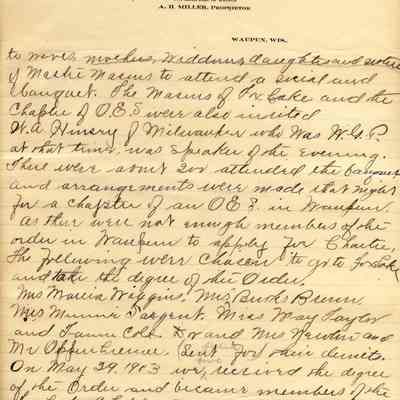 A. H. MILLER, PROPRIETOR
WAUPUN, WIS.
to wives, mothers, Widdows, daughters and sisters
of Master Masons to attend a social and
Banquet. The Masons of Fox Lake and the
Chapter of O.E.S were also invited
W. A. of Milwaukee who Was W.G.P
at that time was Speaker of the Evening.
There were about 200 attended the banquet
and arrangements were made that night
for a Chapter of an O.E.S. in Waupun.
As ther were not enough members of the
order in Waupun to apply for Charter,
The following were chosen to go to Fox Lake
and take the degree of the Order.
Mrs Marcia Wiggins, Mrs Burks
Mrs Minnie Sargent. Miss May Taylor
and Fannie Cole Dr and Mrs Newton and
Mr Oppenheimer. Sent for their demits.
On May 29, 1903 we received the degree
of the Order and became members of the